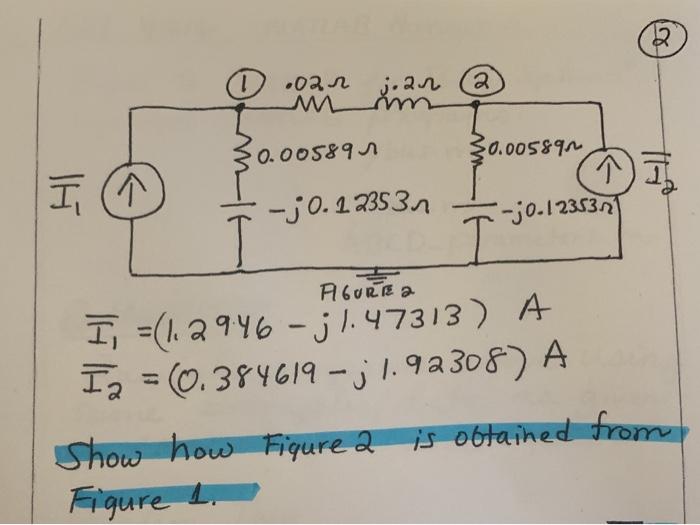 2
1 .02Ω j.2Ω 2
0.00589Ω 0.00589Ω
I̅₁ I̅₂
-j0.12353Ω -j0.12353Ω
FIGURE 2
I̅₁ = (1.2946 - j1.47313) A
I̅₂ = (0.384619 - j1.92308) A
Show how Figure 2 is obtained from
Figure 1.